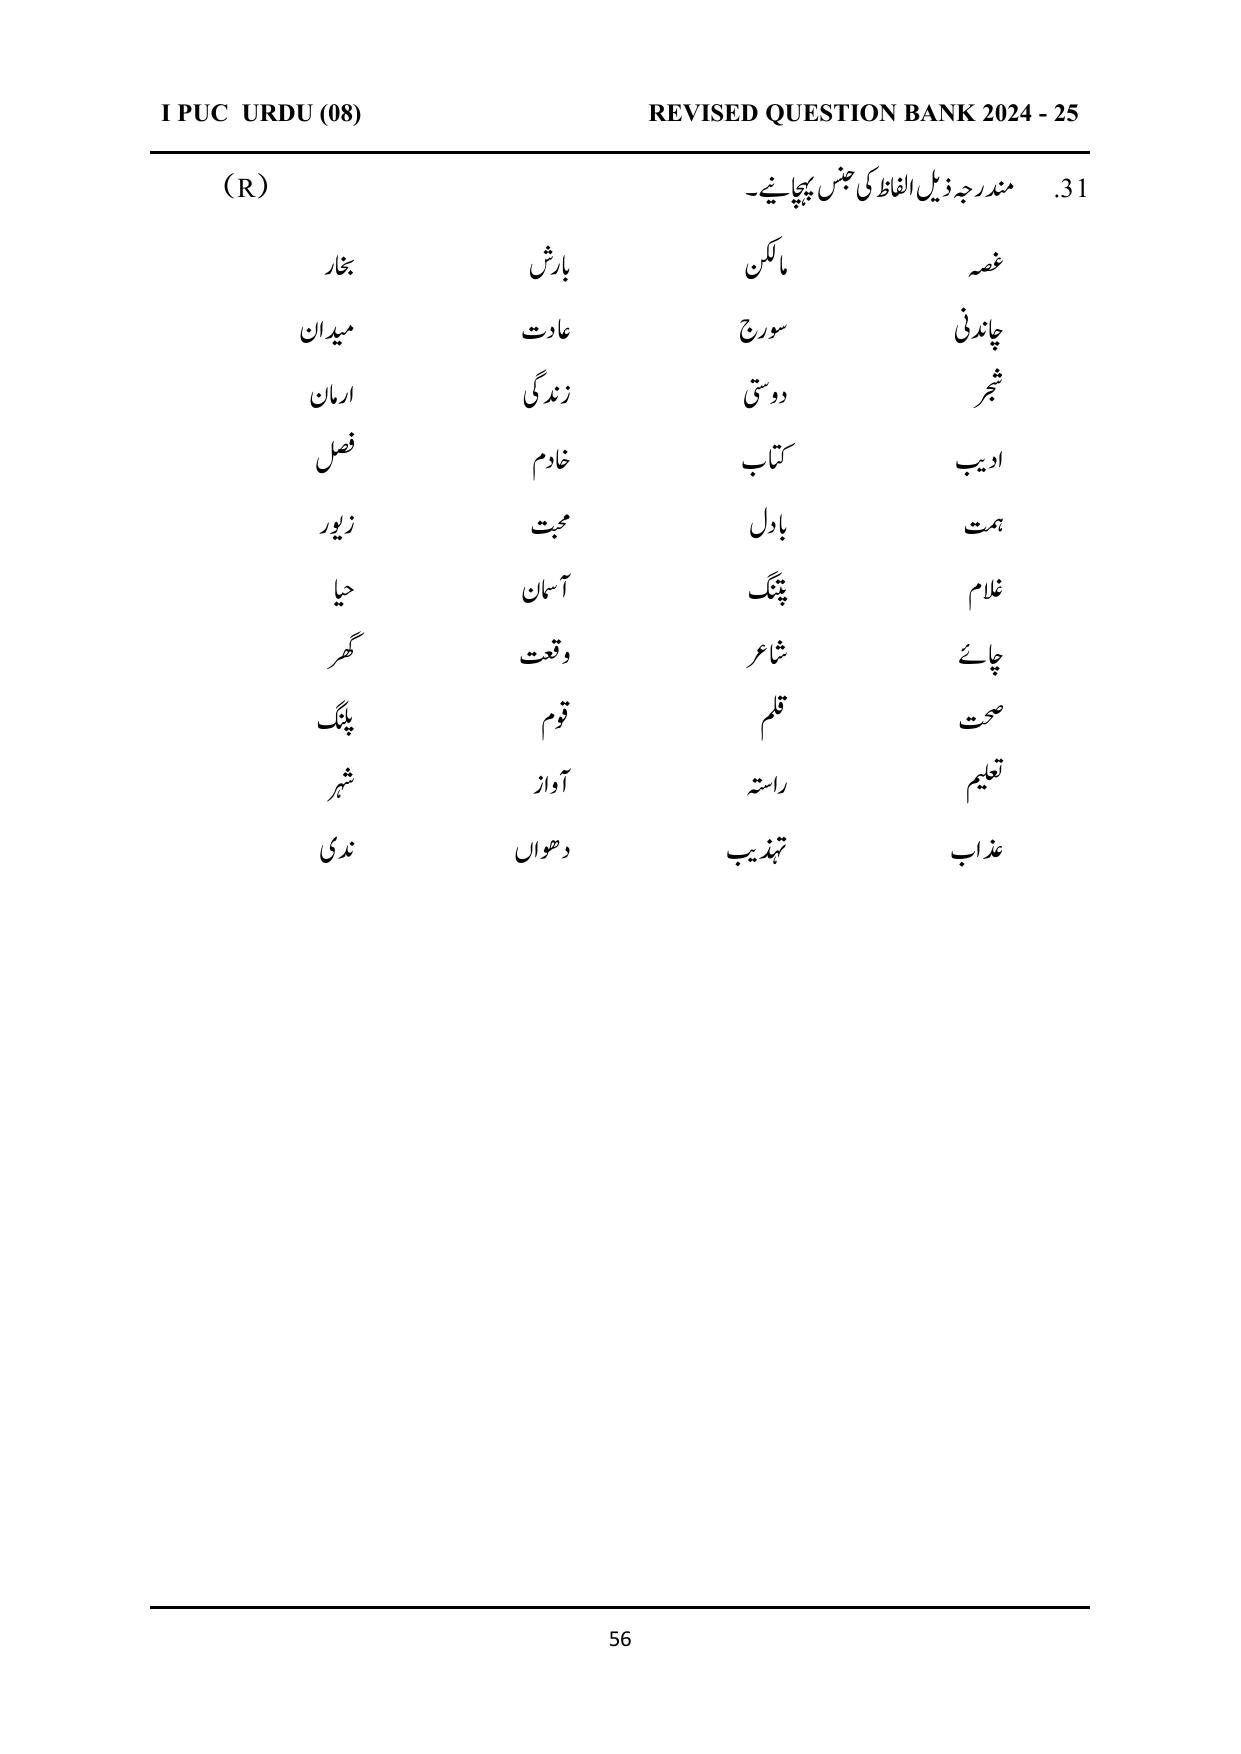 I PUC URDU (08) REVISED QUESTION BANK 2024 - 25
31. مندرجہ ذیل الفاظ کی جنس پہچانیے۔ (R)
غصہ مالکن بارش بخار
چاندنی سورج عادت میدان
شجر دوستی زندگی ارمان
ادیب کتاب خادم فصل
ہمت بادل محبت زیور
غلام پتنگ آسمان حیا
چائے شاعر وقعت گھر
صحت قلم قوم پلنگ
تعلیم راستہ آواز شہر
عذاب تہذیب دھواں ندی
56